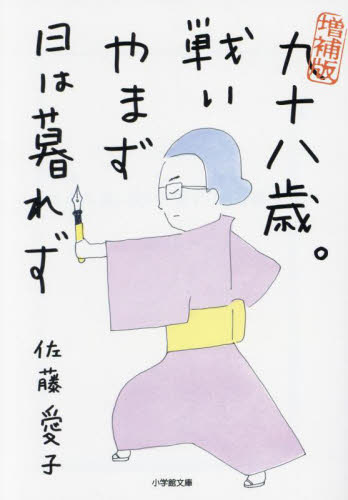 増補版
九十八歳。
戦い
やまず
日は暮れず
佐藤愛子
小学館文庫